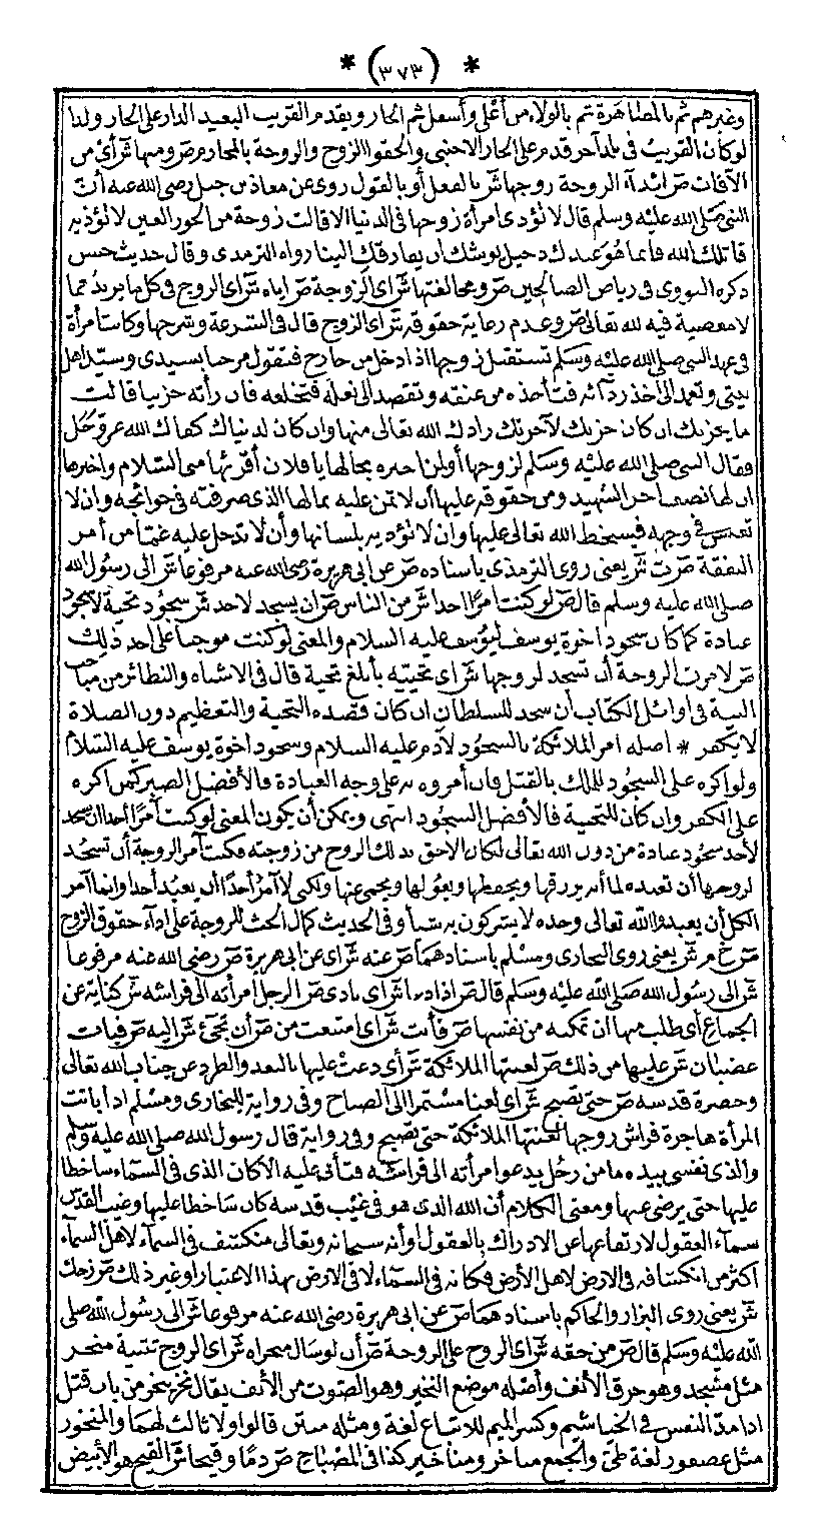 * (٣٧٣) *
وغيرهم ثم بالمصاهرة ثم بالولاء من أعلى وأسفل ثم الجار ويقدم القريب البعيد الدار على الجار ولذا
لو كان القريب فى بلد آخر قدم على الجار الاجنبى والحقوا الزوج والزوجة بالمحارم ص ومنها ش أى من
الآفات ص ايذاء الزوجة زوجها ش بالفعل أو بالقول روى عن معاذ بن جبل رضى الله عنه أن
النبى صلى الله عليه وسلم قال لا تؤذى امرأة زوجها فى الدنيا الا قالت زوجة من الحور العين لا تؤذيه
قاتلك الله فانما هو عندك دخيل يوشك ان يفارقك الينا رواه الترمذى وقال حديث حسن
ذكره النووى فى رياض الصالحين ص ومخالفتها ش أى الزوجة ص اياه ش أى الزوج فى كل ما يريد مما
لا معصية فيه لله تعالى ص وعدم رعاية حقوقه ش أى الزوج قال فى الشرعة وشرحها وكانت امرأة
فى عهد النبى صلى الله عليه وسلم تستقبل زوجها اذا دخل من خارج فتقول مرحبا بسيدى وسيد اهل
بيتى وتعمد الى أخذ ردائه فتأخذه من عنقه وتقصد الى نعله فتخلعه فان رأته حزينا قالت
ما يحزنك ان كان حزنك لآخرتك زادك الله تعالى منها وان كان لدنياك كفاك الله عز وجل
فقال النبى صلى الله عليه وسلم لزوجها أو لمن اخبره بحالها يا فلان أقرئها منى السلام واخبرها
ان لها نصف اجر الشهيد ومن حقوقه عليها أن لا تمن عليه بمالها الذى صرفته فى حوائجه وان لا
تعبس فى وجهه فيسخط الله تعالى عليها وان لا تؤذيه بلسانها وأن لا تدخل عليه غما من أمر
النفقة ص ت ش يعنى روى الترمذى باسناده ص عن ابى هريرة رضى الله عنه مرفوعا ش الى رسول الله
صلى الله عليه وسلم قال ص لو كنت آمرا احدا ش من الناس ص أن يسجد لاحد ش سجود تحية لا سجود
عبادة كما كان سجود اخوة يوسف ليوسف عليه السلام والمعنى لو كنت موجبا على احد ذلك
ص لامرت الزوجة أن تسجد لزوجها ش أى تحييه بأبلغ تحية قال فى الاشباه والنظائر من مباحث
النية فى اوائل الكتاب أن سجد للسلطان ان كان قصده التحية والتعظيم دون الصلاة
لا يكفر * اصله امر الملائكة بالسجود لآدم عليه السلام وسجود اخوة يوسف عليه السلام
ولو اكره على السجود للملك بالقتل فان أمروه به على وجه العبادة فالأفضل الصبر كمن اكره
على الكفر وان كان للتحية فالأفضل السجود انتهى ويمكن أن يكون المعنى لو كنت آمرا أحدا ان يسجد
لأحد سجود عبادة من دون الله تعالى لكان الاحق بذلك الزوج من زوجته فكنت آمر الزوجة أن تسجد
لزوجها أن تعبده لما أنه يرزقها ويحفظها ويعولها ويحمى عنها ولكنى لا آمر أحدا أن يعبد أحدا وانما آمر
الكل أن يعبدوا الله تعالى وحده لا يشركون به شيأ وفى الحديث كمال الحث للزوجة على اداء حقوق الزوج
ص خ م ش يعنى روى البخارى ومسلم باسنادهما ص عنه ش أى عن ابى هريرة ص رضى الله عنه مرفوعا
ش الى رسول الله صلى الله عليه وسلم قال ص اذا دعا ش أى نادى ص الرجل امرأته الى فراشه ش كناية عن
الجماع أى طلب منها ان تمكنه من نفسها ص فأبت ش أى امتنعت من ص أن تجئ ش اليه ص فبات
غضبان ش عليها من ذلك ص لعنتها الملائكة ش أى دعت عليها بالبعد والطرد عن جناب الله تعالى
وحضرة قدسه ص حتى تصبح ش أى لعنا مستمرا الى الصباح وفى رواية للبخارى ومسلم اذا باتت
المرأة هاجرة فراش زوجها لعنتها الملائكة حتى تصبح وفى رواية قال رسول الله صلى الله عليه وسلم
والذى نفسى بيده ما من رجل يدعو امرأته الى فراشه فتأبى عليه الا كان الذى فى السماء ساخطا
عليها حتى يرضى عنها ومعنى الكلام أن الله الذى هو فى غيب قدسه كان ساخطا عليها وغيب القدس
سماء العقول لارتفاعها عن الادراك بالعقول وأنه سبحانه وتعالى منكشف فى السماء لاهل السماء
اكثر من انكشافه فى الارض لاهل الأرض فكأنه فى السماء لا فى الارض بهذا الاعتبار او غير ذلك ص زحك
ش يعنى روى البزار والحاكم باسنادهما ص عن ابى هريرة رضى الله عنه مرفوعا ش الى رسول الله صلى
الله عليه وسلم قال ص من حقه ش أى الزوج على الزوجة ص أن لو سال منخراه ش أى الزوج تثنية منخر
مثل مسجد وهو خرق الأنف وأصله موضع النخير وهو الصوت من الأنف يقال نخر ينخر من باب قتل
اذا مد النفس فى الخياشيم وكسر الميم للاتباع لغة ومثله منتن قالوا ولا ثالث لهما والمنخور
مثل عصفور لغة طئ والجمع مناخر ومناخير كذا فى المصباح ص دما وقيحا ش القيح هو الأبيض